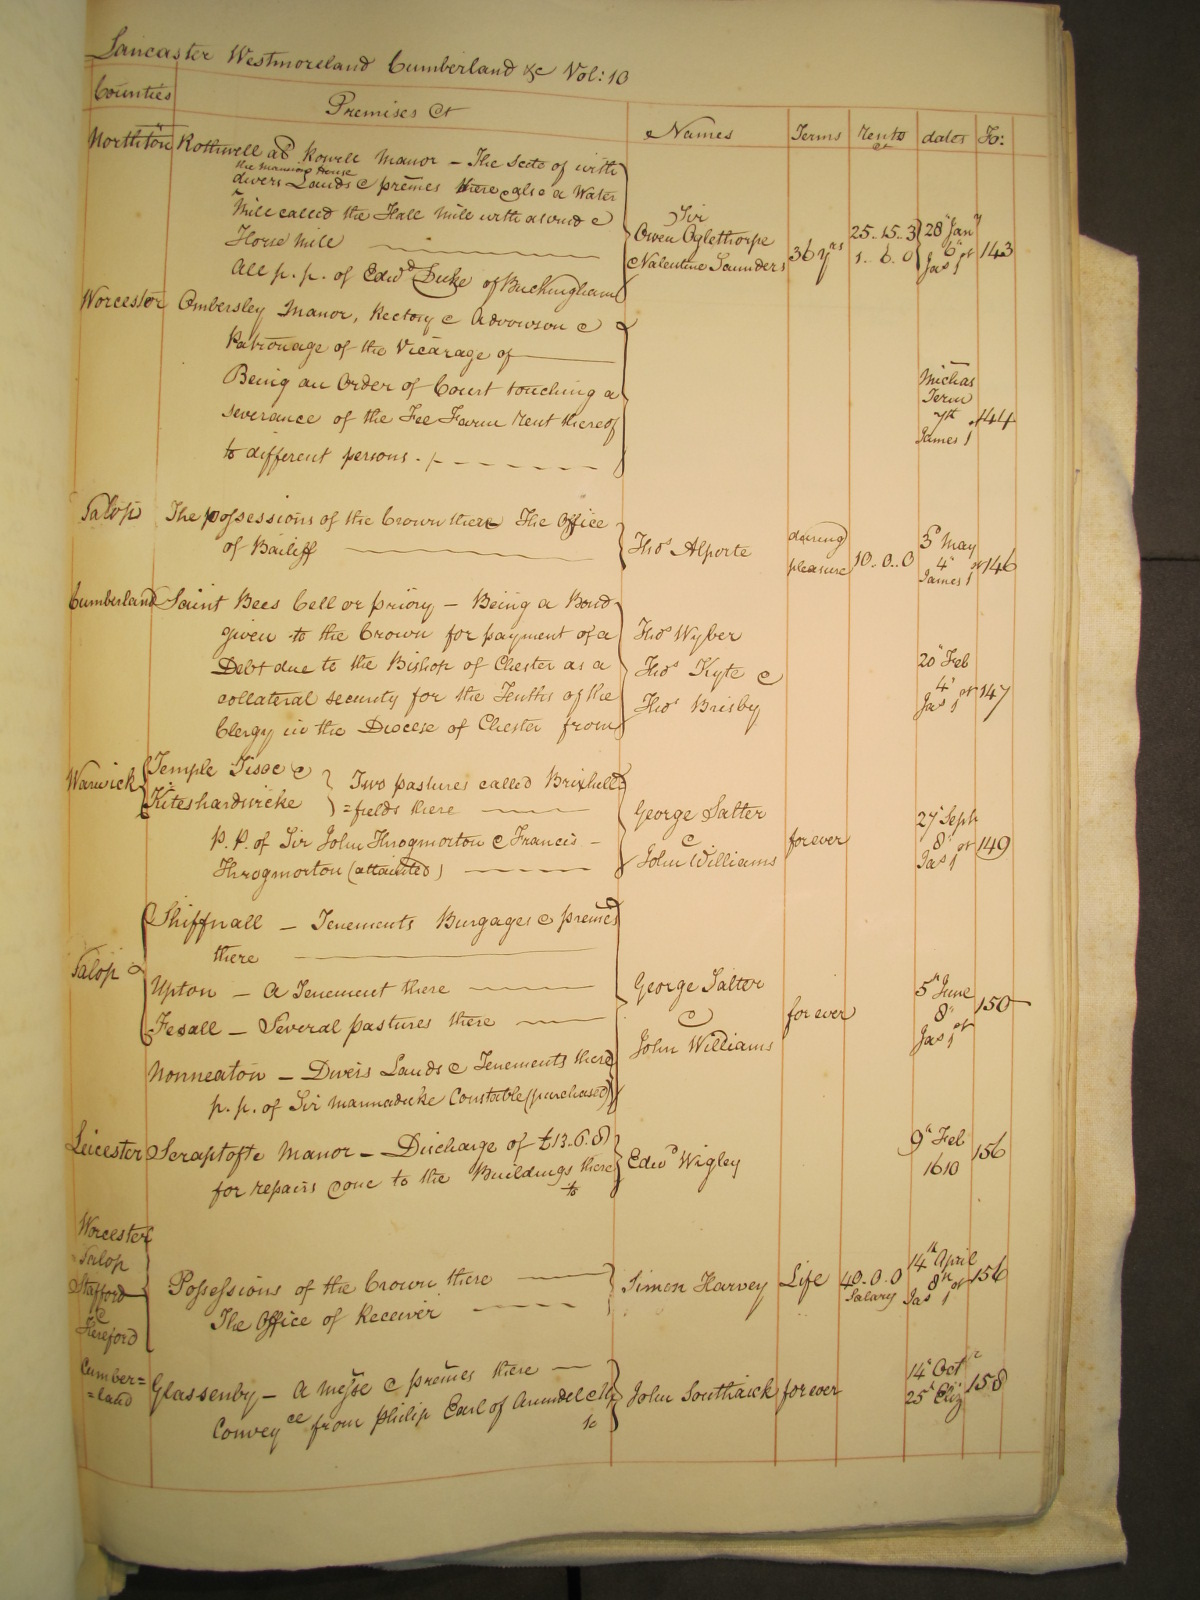 Lancaster Westmoreland Cumberland &c Vol: 10
Counties
Premises &c
Names
Terms
Rents &c
dates
Fo:
Northton Rothwell als Rowell Manor – The Scite of with
the Mannor House
divers Lands & prẽmes there also a Water
Mill called the Hall Mill with a wind &
Horse Mill
All p. p. of Edwd Duke of Buckingham
Sir
Owen Oglethorpe
& Valentine Saunders
36 yrs
25..15..3
1..6..0
28th Jany
6th of
Jas 1
143
Worcester Ombersley Manor, Rectory & Advowson &
Patronage of the Vicarage of
Being an Order of Court touching a
severance of the Fee Farm Rent thereof
to different persons.
Michas
Term
7th of
James 1
144
Salop The possessions of the Crown there The Office
of Bailiff
Thos Alporte
during
pleasure
10..0..0
3d May
4th of
James 1
146
Cumberland Saint Bees Cell or priory – Being a Bond
given to the Crown for payment of a
Debt due to the Bishop of Chester as a
collateral security for the Tenths of the
Clergy in the Diocese of Chester from
Thos Wyber
Thos Kyte &
Thos Brisby
20th Feb
4th of
Jas 1
147
Warwick Temple Tisoe &
Kiteshardwicke
Two pastures called Brixhill
=fields there
P. P. of Sir John Throgmorton & Francis
Throgmorton (attainted)
George Salter
&
John Williams
for ever
27 Sept
8th of
Jas 1
149
Salop
Shiffnall – Tenements Burgages & premẽs
there
Upton – A Tenement there
Fesall – Several pastures there
Nonneaton – Divers Lands & Tenements there
p. p. of Sir Marmaduke Constable (purchased)
George Salter
&
John Williams
for ever
5th June
8th of
Jas 1
150
Leicester Scraptofte Manor – Discharge of £13..6..8
for repairs done to the Buildings there
Edwd Wigley
9th Feb
1610
156
Worcester
Salop
Stafford
&
Hereford
Possessions of the Crown there
The Office of Receiver
Simon Harvey
Life
40..0..0
Salary
14th April
8th of
Jas 1
156
Cumber=
=land
Glassenby – A Messe & prẽmes there
Conveyce from Philip Earl of Arundel
&c
John Southaick
for ever
14th Oct
25th Eliz
158